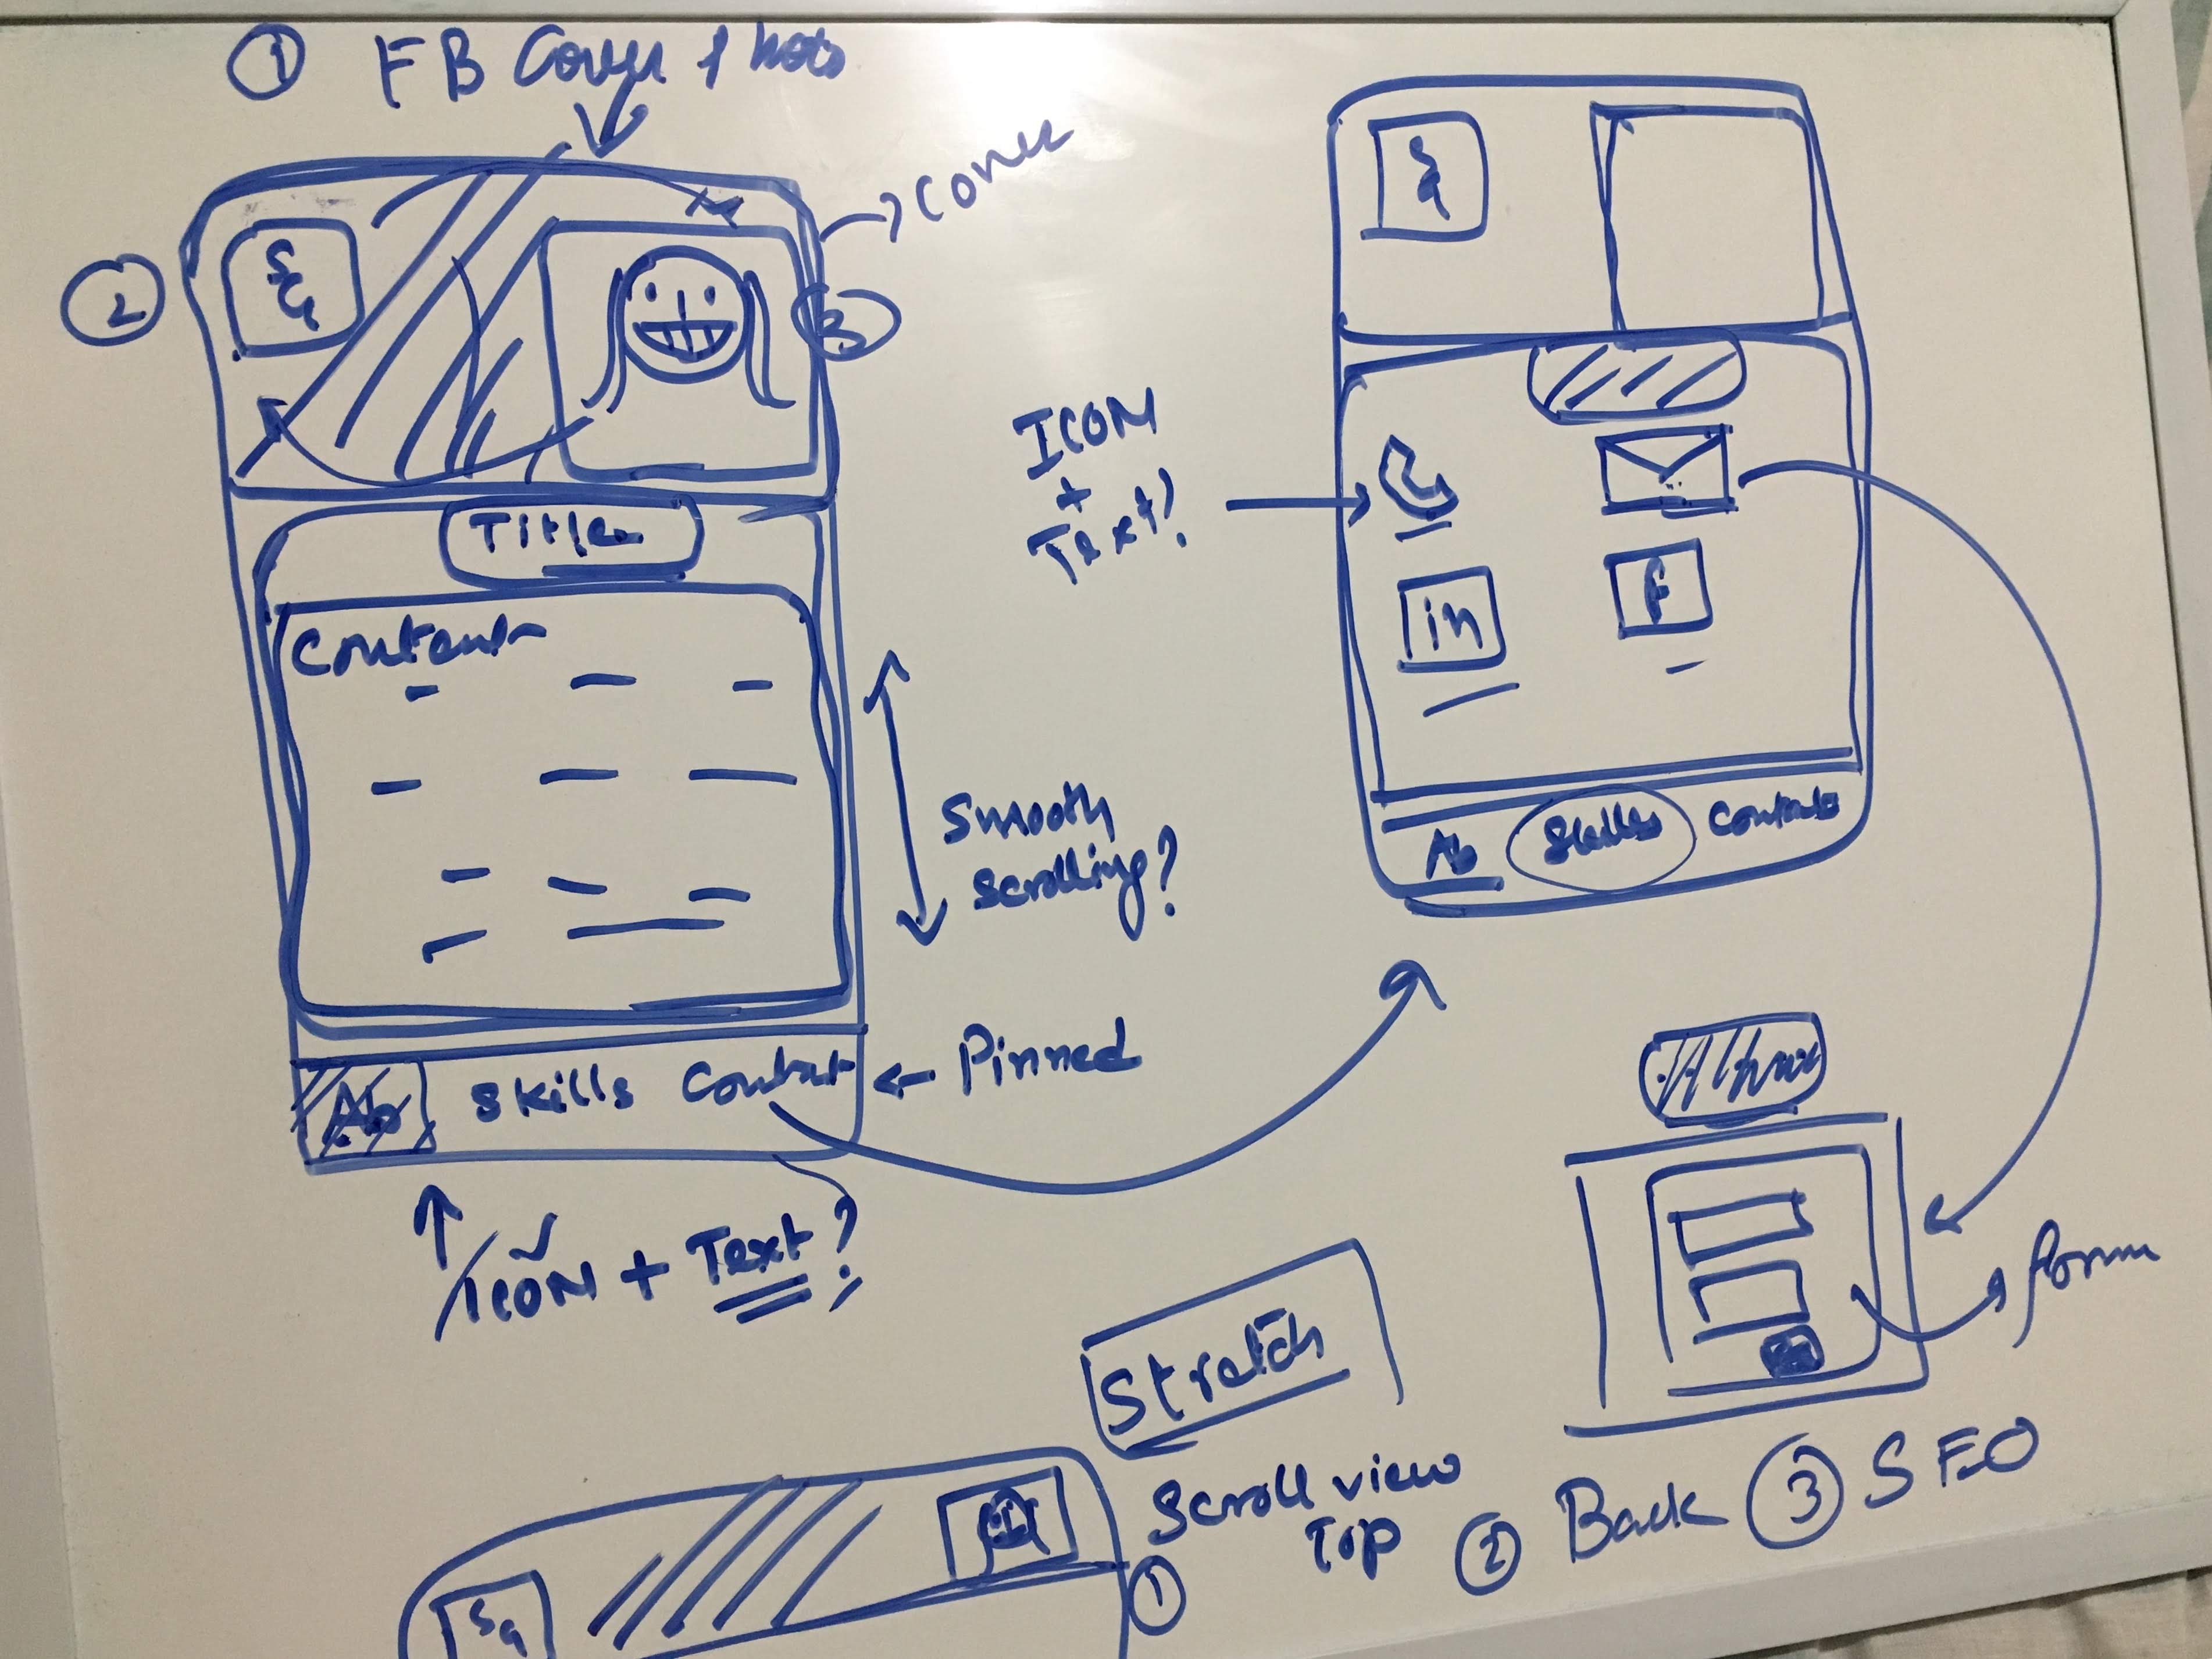 ① FB Cover
→ Cover
②
S G
③
Title
Content
Smooth
Scrolling?
Ab Skills Contact ← Pinned
ICON + Text?
S G
ICON
+
Text?
in f
Ab Skills Contact
form
Stretch
① Scroll view
Top
② Back ③ SEO
S G